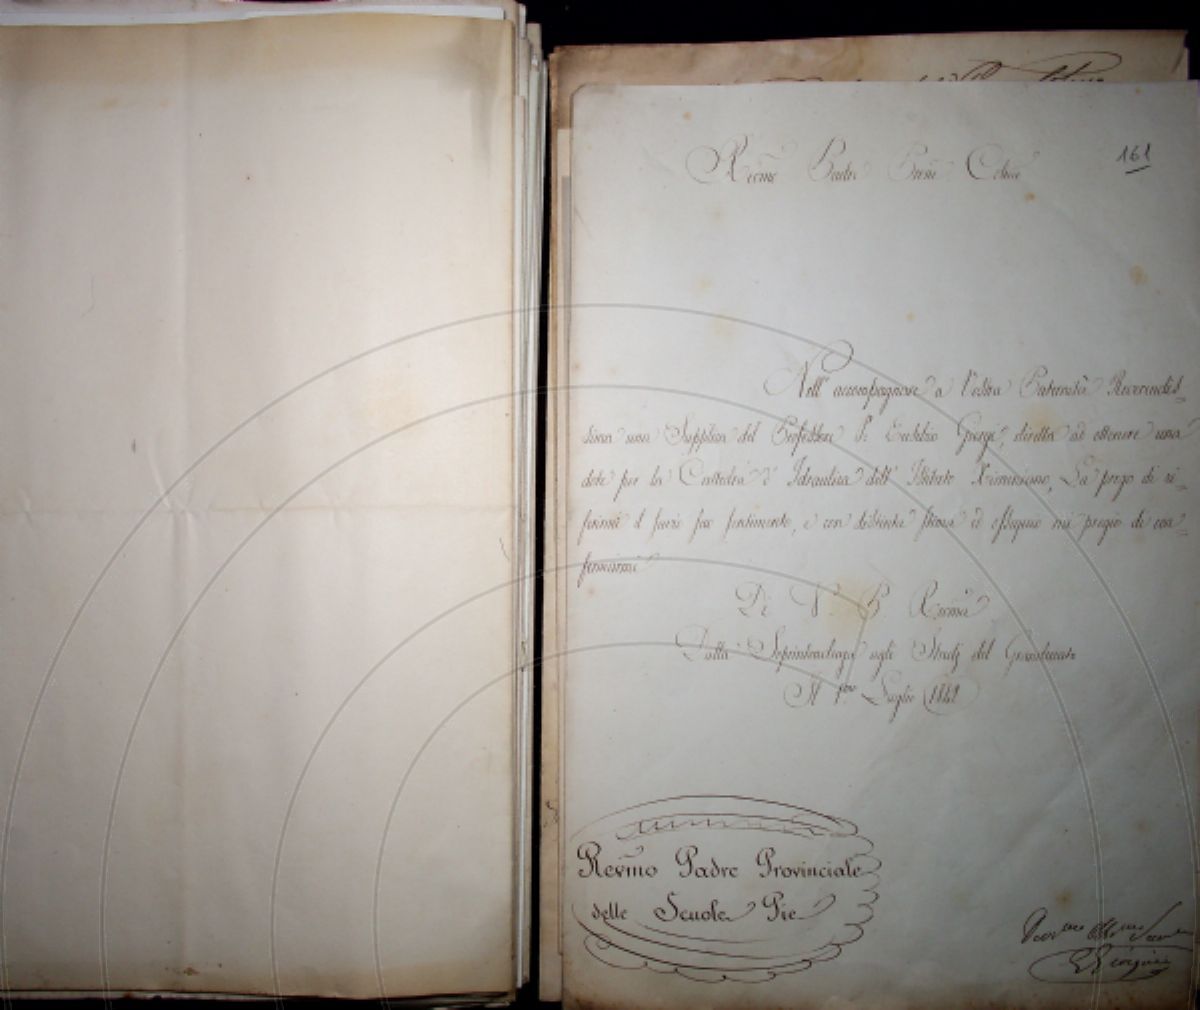 161
Rev.mo Padre Pron.e Col.mo
Nell' accompagnare a Vostra Paternità Reverendis-
sima una Supplica del Professore P. Eusebio Giorgi, diretta ad ottenere una
dote per la Cattedra d' Idraulica dell' Istituto Ximeniano, La prego di
e con distinta stima ed ossequio mi pregio di con-
fermarmi
Di V. P. Rev.ma
Dalla Soprintendenza agli Studj del Granducato
Luglio
Revmo Padre Provinciale
delle Scuole Pie